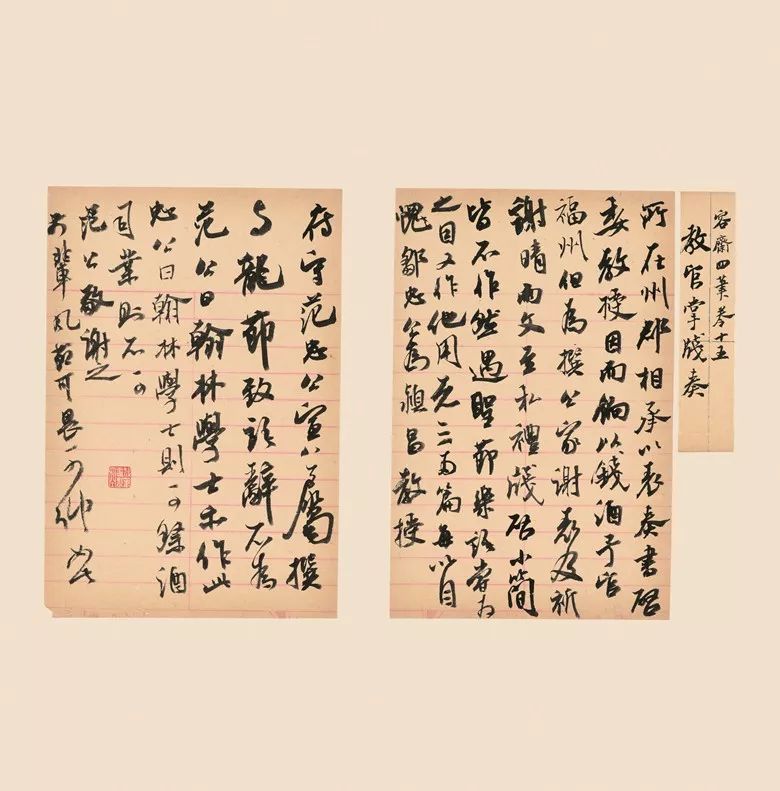 容齋四筆卷十五
教官掌牋奏
所在州郡相承以表奏書啟
委教授因而餉以錢酒予官
福州但為撰公家謝表及祈
謝晴雨文至私禮牋啟小簡
皆不作然遇聖節樂語嘗為
之因又作他用者三兩篇每以自
愧鄒忠公為潁昌教授
府守范忠宣公屬撰
与龍節致語辭不為
范公曰翰林學士亦作此
忠公曰翰林學士則可祭酒
司業則不可
范公敬謝之
前輩風節可畏可仰如此